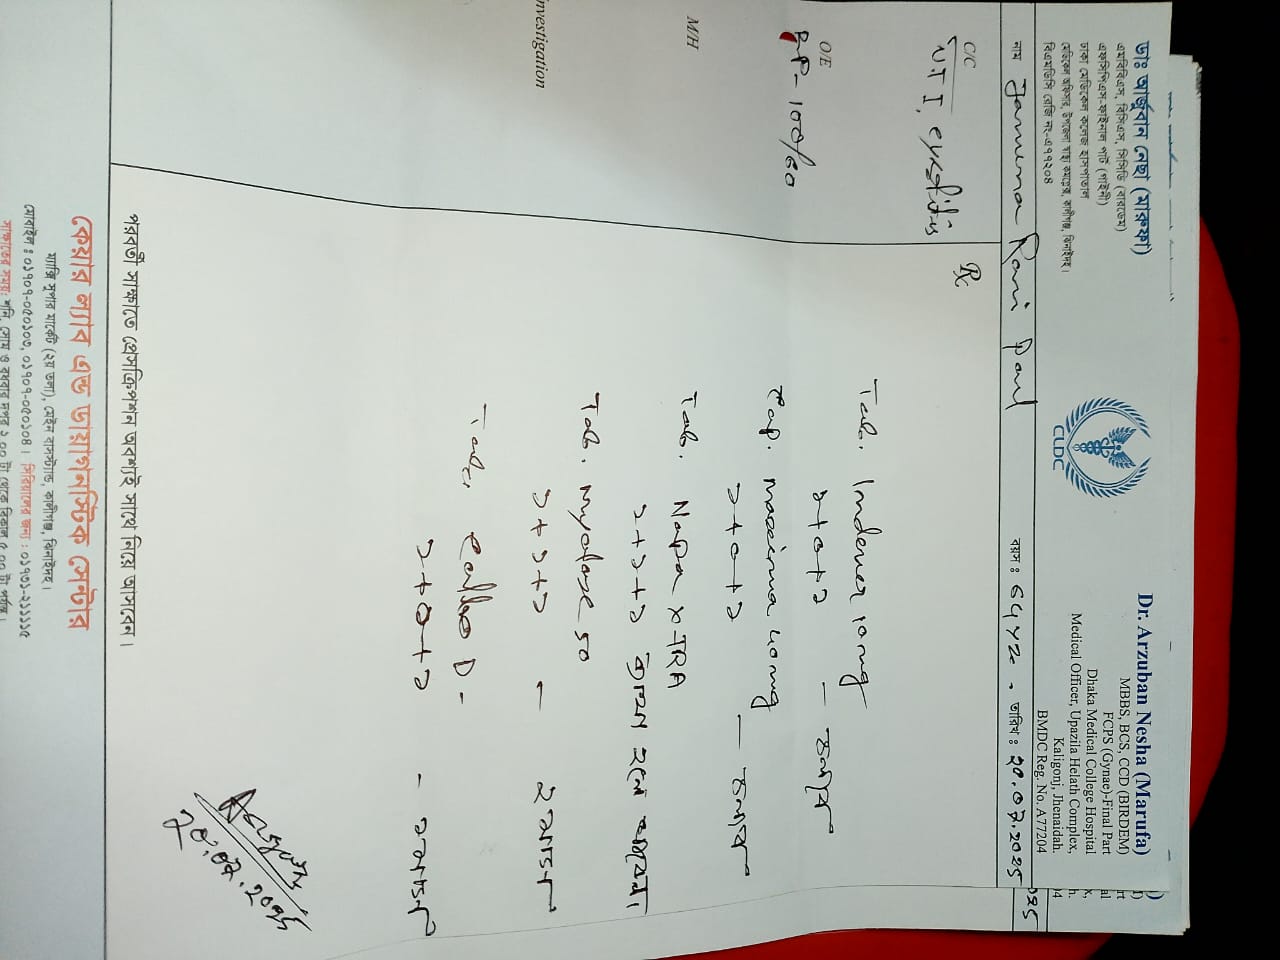 ডাঃ আর্জুবান নেছা (মারুফা)
এমবিবিএস, বিসিএস, সিসিডি (বারডেম)
এফসিপিএস-ফাইনাল পার্ট (গাইনী)
ঢাকা মেডিকেল কলেজ হাসপাতাল
মেডিকেল অফিসার, উপজেলা স্বাস্থ্য কমপ্লেক্স, কালীগঞ্জ, ঝিনাইদহ।
বিএমডিসি রেজি নং-এ৭৭২০৪
CLDC
Dr. Arzuban Nesha (Marufa)
MBBS, BCS, CCD (BIRDEM)
FCPS (Gynae)-Final Part
Dhaka Medical College Hospital
Medical Officer, Upazila Helath Complex,
Kaligonj, Jhenaidah.
BMDC Reg. No. A77204
নাম Jamuna Rani Paul বয়স : 64 yz. তারিখ : ২০.০৭.2025
C/C
UTI, cystitis
O/E
BP- 100/60
M/H
Investigation
Rx
Tab. Indever 10 mg
১+০+১ - চলবে
Cap. Maxima 40 mg
১+০+১ — চলবে
Tab. Napa XTRA
১+১+১
Tab. Myolax 50
১+১+১ - ২ মাস
Tab. Calbo D -
১+০+১ - ১ মাস
পরবর্তী সাক্ষাতে প্রেসক্রিপশন অবশ্যই সাথে নিয়ে আসবেন।
কেয়ার ল্যাব এন্ড ডায়াগনস্টিক সেন্টার
মোবাইল : ০১৭০৭-০৫০১০৩, ০১৭০৭-০৫০১০৪। সিরিয়ালের জন্য : ০১৭৩১-২১১১১৫